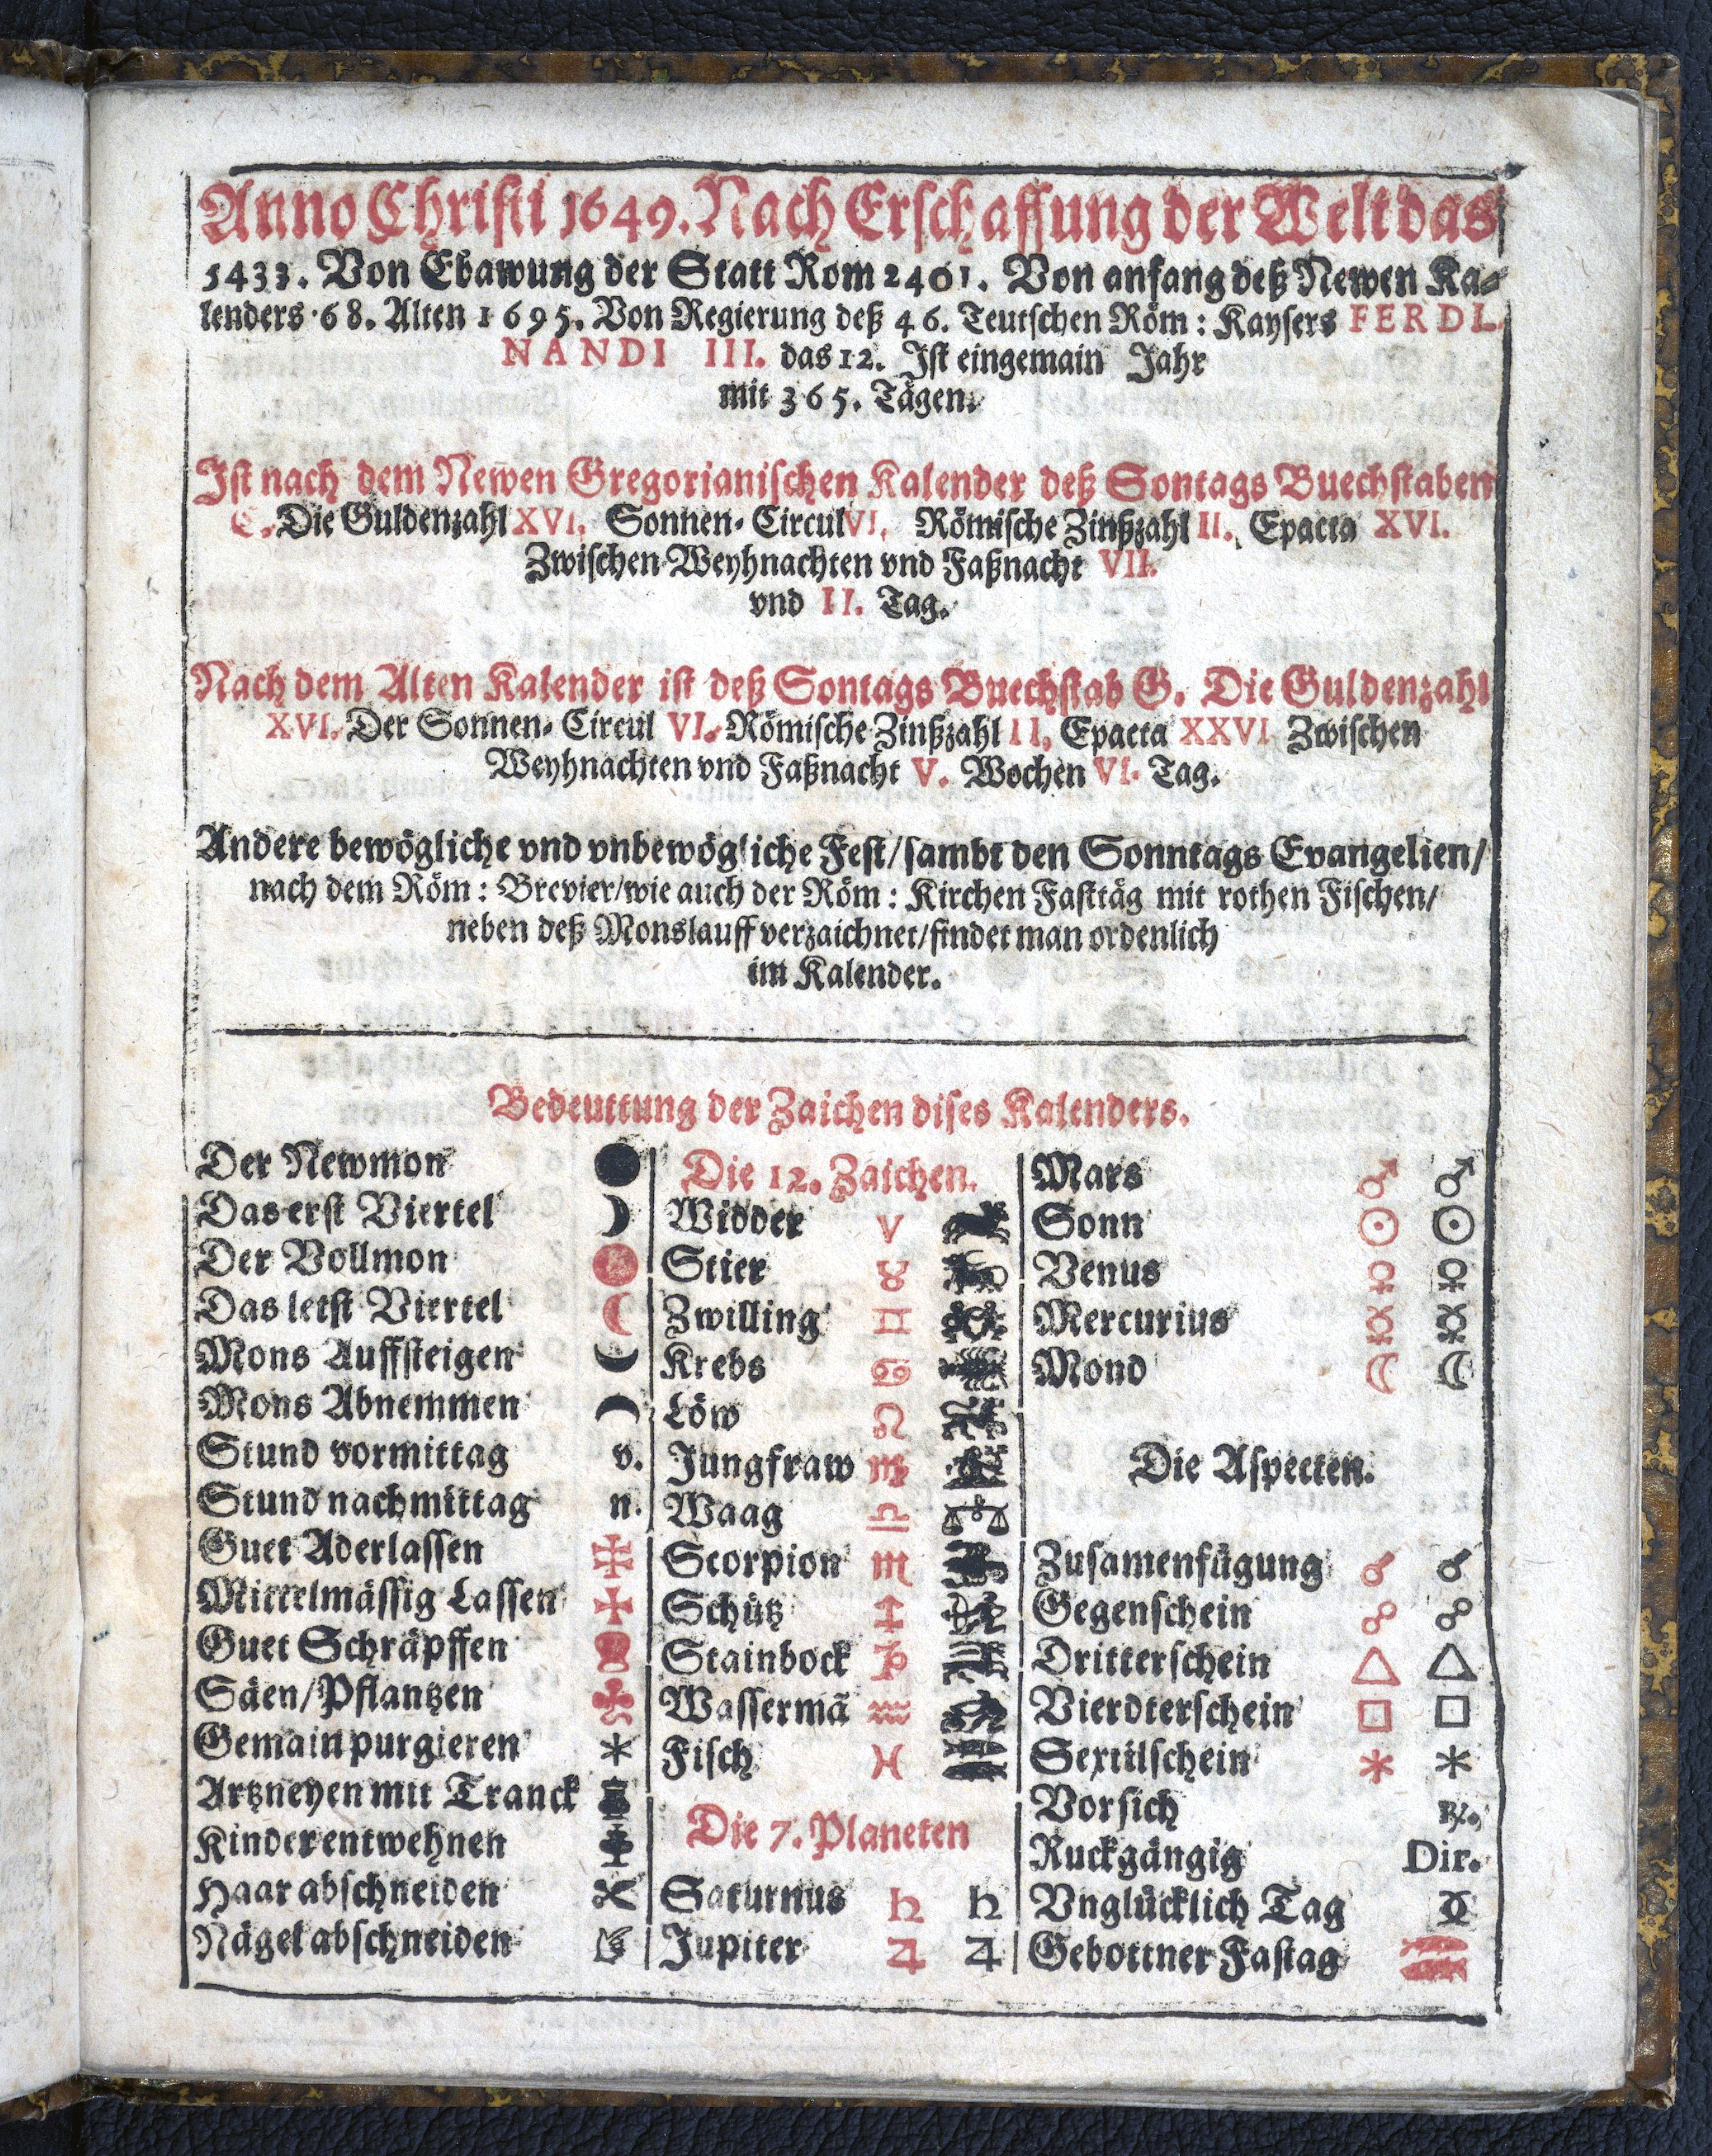 Anno Christi 1649. Nach Erschaffung der Welt das
5433. Von Ebawung der Statt Rom 2401. Von anfang deß Newen Ka-
lenders 68. Alten 1695. Von Regierung deß 46. Teutschen Röm: Kaysers FERDI-
NANDI III. das 12. Ist ein gemain Jahr
mit 365. Tägen.
Ist nach dem Newen Gregorianischen Kalender deß Sontags Buechstaben
C. Die Guldenzahl XVI. Sonnen-Circul VI. Römische Zinßzahl II. Epacta XVI.
Zwischen Weyhnachten vnd Faßnacht VII.
vnd II. Tag.
Nach dem Alten Kalender ist deß Sontags Buechstab G. Die Guldenzahl
XVI. Der Sonnen-Circul VI. Römische Zinßzahl II, Epacta XXVI Zwischen
Weyhnachten vnd Faßnacht V. Wochen VI. Tag.
Andere bewögliche vnd vnbewögliche Fest/sambt den Sonntags Evangelien/
nach dem Röm: Brevier/wie auch der Röm: Kirchen Fasttäg mit rothen Fischen/
neben deß Monslauff verzaichnet/findet man ordenlich
im Kalender.
Bedeuttung der Zaichen dises Kalenders.
Der Newmon
Das erst Viertel
Der Vollmon
Das letst Viertel
Mons Auffsteigen
Mons Abnemmen
Stund vormittag v.
Stund nachmittag n.
Guet Aderlassen
Mittelmässig Lassen
Guet Schräpffen
Säen/Pflantzen
Gemain purgieren
Artzneyen mit Tranck
Kinder entwehnen
Haar abschneiden
Nägel abschneiden
Die 12. Zaichen.
Widder ♈
Stier ♉
Zwilling ♊
Krebs ♋
Löw ♌
Jungfraw ♍
Waag ♎
Scorpion ♏
Schütz ♐
Stainbock ♑
Wassermã ♒
Fisch ♓
Die 7. Planeten
Saturnus ♄ ♄
Jupiter ♃ ♃
Mars ♂ ♂
Sonn ☉ ☉
Venus ♀ ♀
Mercurius ☿ ☿
Mond ☾ ☾
Die Aspecten.
Zusamenfügung ☌ ☌
Gegenschein ☍ ☍
Dritterschein △ △
Vierdterschein □ □
Sextilschein * *
Vorsich ℞.
Ruckgängig Dir.
Vnglücklich Tag
Gebottner Fastag